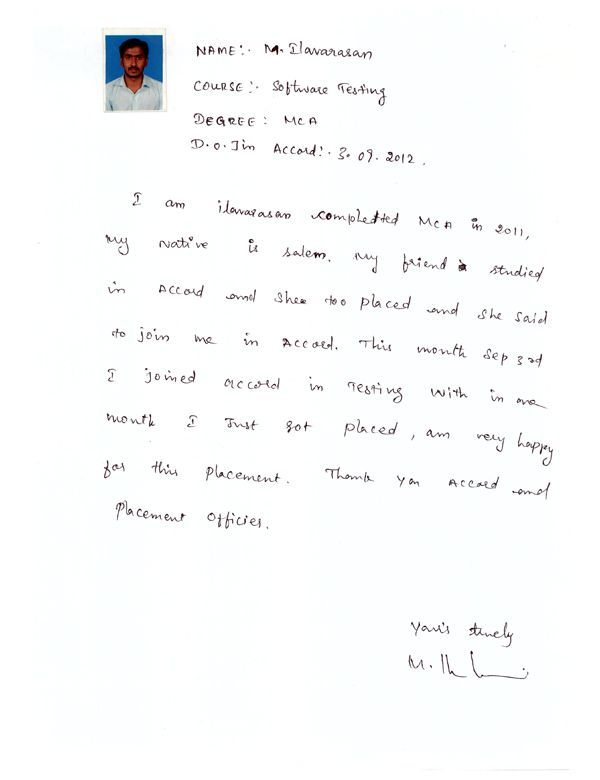 NAME:- M. Ilavarasan
COURSE:- Software Testing
DEGREE: MCA
D.O.Jin Accord:- 3.09.2012.
I am ilavarasan completted MCA in 2011,
My Native is salem. My friend is studied
in Accord and Shee too placed and she said
to join me in Accord. This month Sep 3rd
I joined accord in Testing with in one
month I Just got placed, am very happy
for this placement. Thank you Accord and
Placement Officies.
Your's truely
M.